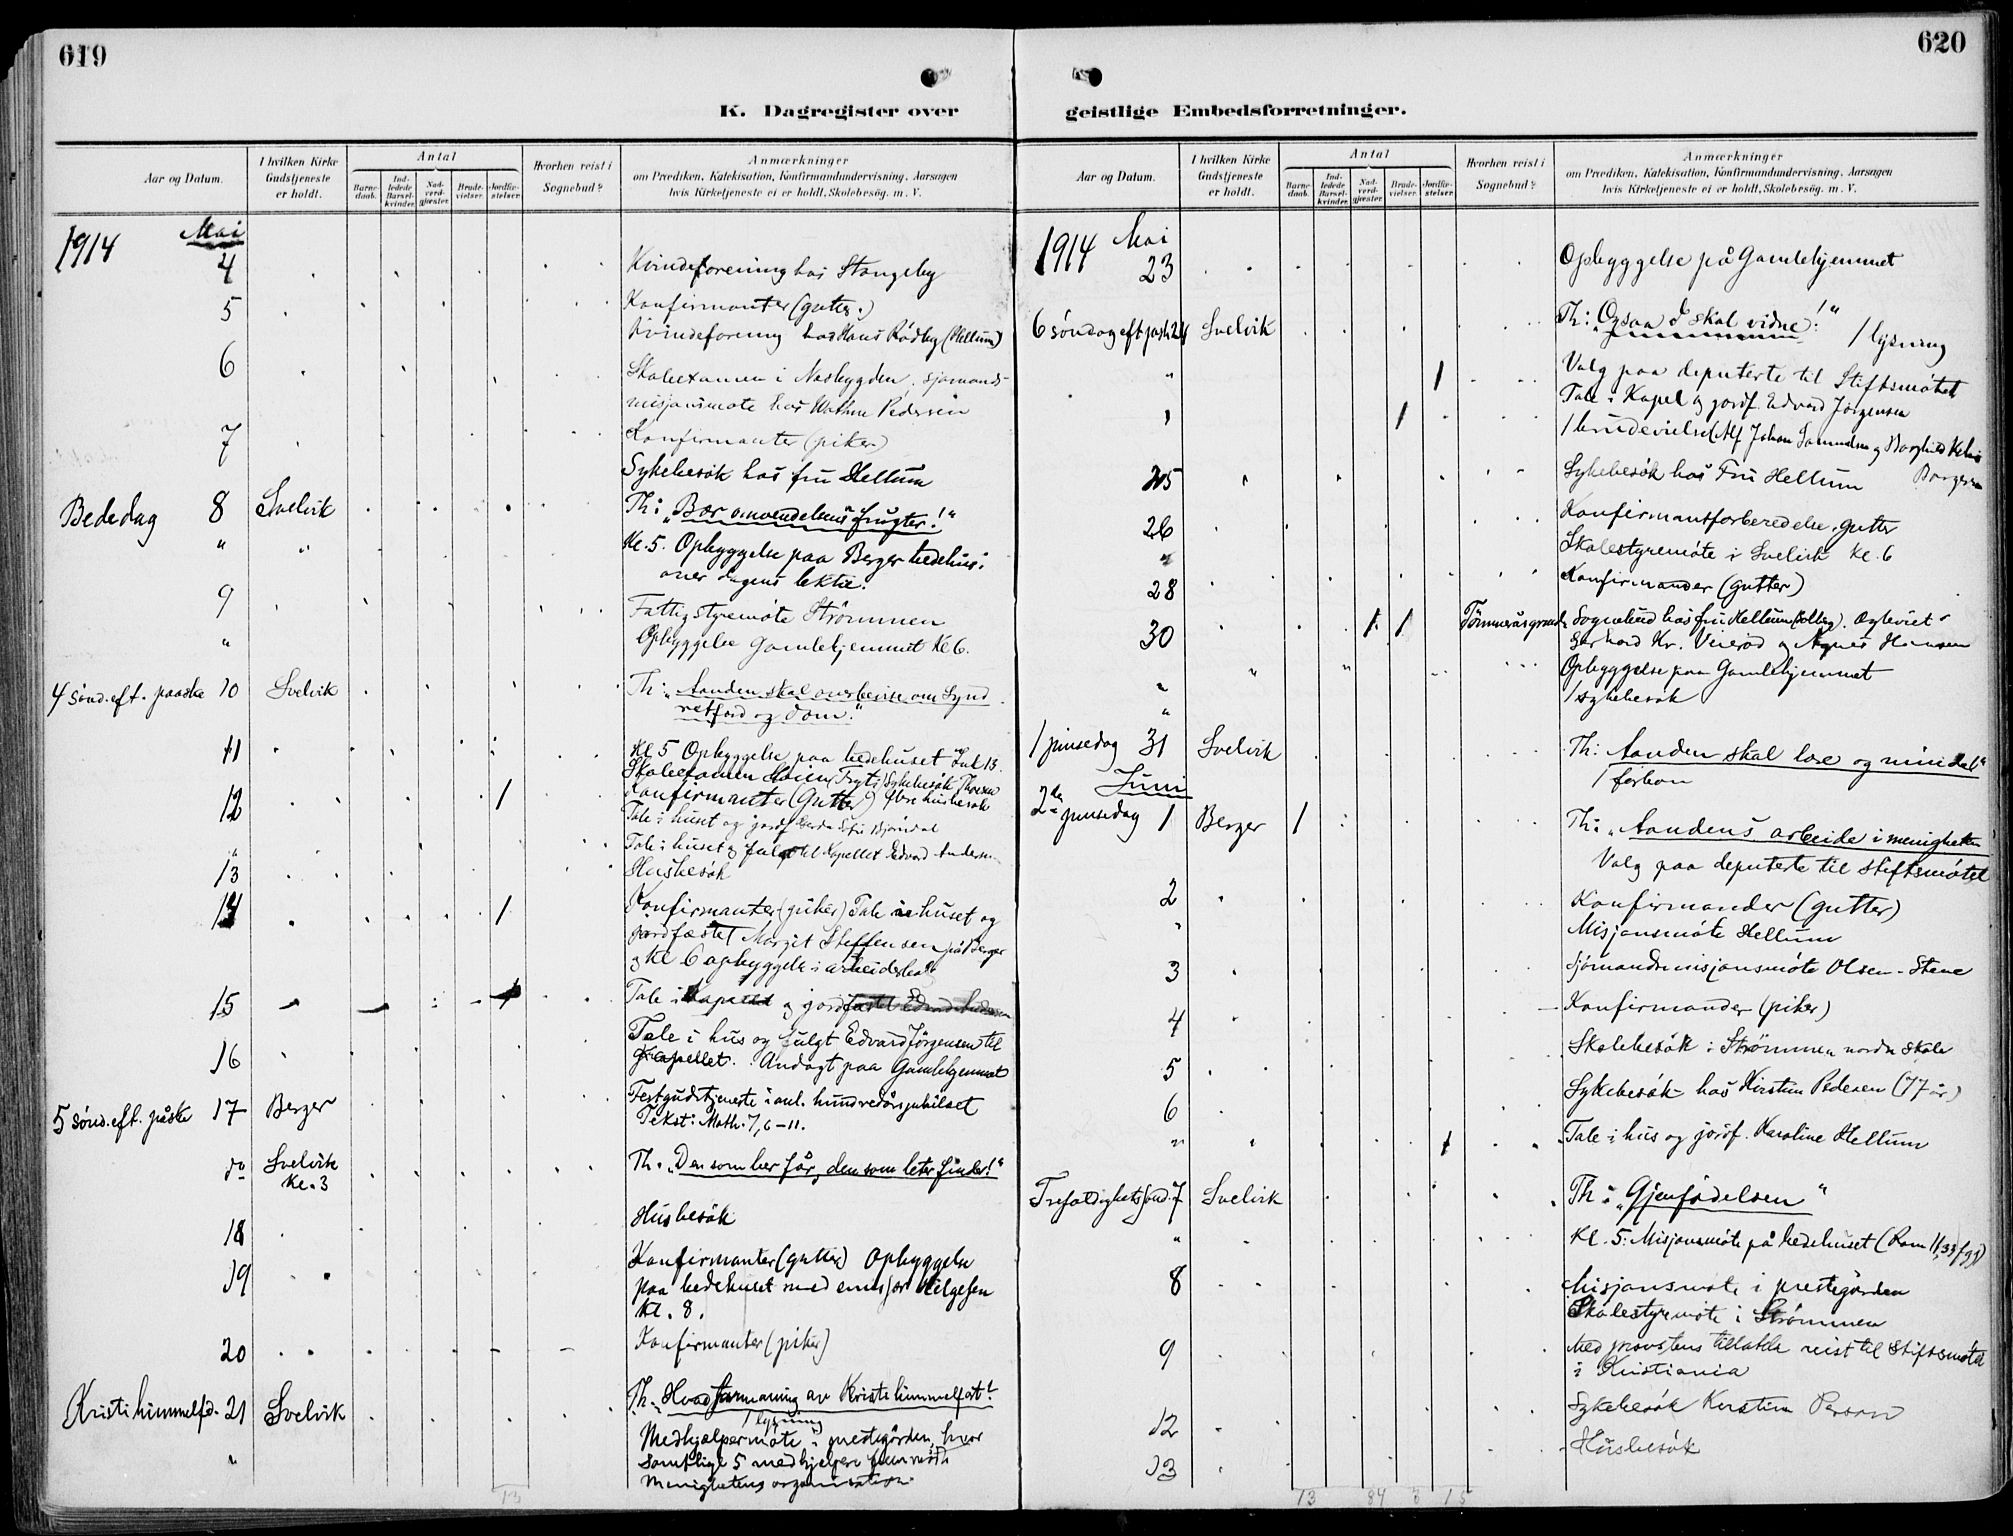 619
K. Dagregister over
Aar og Datum.
I hvilken Kirke Gudstjeneste er holdt.
Antal
Barnedaab.
Indledede Barselkvinder.
Nadverdgjæster.
Brudevielser.
Jordfæstelser.
Hvorhen reist i Sognebud?
Anmærkninger
om Prædiken, Katekisation, Konfirmandundervisning, Aarsagen
hvis Kirketjeneste ei er holdt, Skolebesög, m. V.
1914 Mai
4 Kvindeforening hos Stangeby
5 Konfirmanter (gutter.)
Kvindeforening hos Hans Rødby (Hellum)
6 Skoleexamen i Nesbygden. sjømands-
misjonsmøte hos Pedersen
7 Konfirmanter (piker)
Sykebesøk hos fru Hellum
Bededag 8 Svelvik Th: „Bær omvendelsens frugter!“
" " Kl. 5. Opbyggelse paa Berger bedehus:
over dagens lektie.
9 Fattigstyremøte Strømmen
" Opbyggelse Gamlehjemmet Kl 6.
4 sønd. eft. paaske 10 Svelvik Th: „Aanden skal overbevise om Synd
retfærd og dom.“
Kl 5 Opbyggelse paa bedehuset Luk 13.
11 Skoleexamen Sykebesøk
12 1 Konfirmanter (Gutter) husbesøk
Tale i huset og jordf.
" Tale i huset og fulgt til Kapellet Edvard
13 Husbesøk
14 1 Konfirmanter (piker) Tale i huset og
jordfæstet Margit Steffensen på Berger
og kl 6 opbyggelse i
15 Tale i Kapellet og jordfæstet
16 Tale i hus og fulgt Edvard Jørgensen til
Kapellet. Andagt paa Gamlehjemmet
5 sønd. eft. påske 17 Berger Festgudstjeneste i anl. hundredårsjubilæet
Tekst: Math. 7, 6-11.
do Svelvik Kl. 3 Th. „Den som ber får, den som leter finder!“
18 Husbesøk
19 Konfirmanter (gutter) Opbyggelse
paa bedehuset med Helgesen
Kl. 8.
20 Konfirmanter (piker)
Kristi himmelfd. 21 Svelvik Th. av Kristi himmelfart!
1 lysning
" Medhjælpermøte i prestegården, hvor
samtlige 5 medhjelpere
menighetens organisation
13
620
geistlige Embedsforretninger.
Aar og Datum.
I hvilken Kirke Gudstjeneste er holdt.
Antal
Barnedaab.
Indledede Barselkvinder.
Nadverdgjæster.
Brudevielser.
Jordfæstelser.
Hvorhen reist i Sognebud?
Anmærkninger
om Prædiken, Katekisation, Konfirmandundervisning, Aarsagen
hvis Kirketjeneste ei er holdt, Skolebesög, m. V.
1914 Mai
23 Opbyggelse på Gamlehjemmet
6 søndag eft påsk 24 Svelvik Th: „Ogsaa I skal vidne!“
1 lysning
" 1 Valg paa deputerte til Stiftsmøtet
Tale i Kapel og jordf. Edvard Jørgensen
" 1 1 brudevielse (Alf Johan Samuelsen og Borghild
25 Sykebesøk hos Fru Hellum
26 Konfirmantforberedelse, gutter
" Skolestyremøte i Svelvik kl. 6
28 Konfirmander (gutter)
30 1 Sognebud hos fru Hellum. Og
Kr. Veierød og Agnes Hansen
" Opbyggelse paa Gamlehjemmet
" 1 sykebesøk
1 pinsedag 31 Svelvik Th: Aanden skal lære og
1 forbøn
Juni
2den pinsedag 1 Berger 1 Th: „Aandens arbeide i menigheten
Valg paa deputerte til stiftsmøtet
2 Konfirmander (gutter)
" Misjonsmøte Hellum
3 Sjømandsmisjonsmøte Olsen-
4 Konfirmander (piker)
5 Skolebesøk i Strømmen nordre skole
6 Sykebesøk hos Kirsten Pedersen (77 år)
" 1 Tale i hus og jordf. Karoline Hellum
Trefoldighetssønd. 7 Svelvik Th: „Gjenfødelsen“
" Kl. 5: Misjonsmøte på bedehuset (Rom 11,33 fgg)
8 Misjonsmøte i prestegården
Skolestyremøte i Strømmen
9 Med provstens tillatelse reist til Stiftsmøtet
i Kristiania
12 Sykebesøk Kirsten
13 Husbesøk
13 84 3 15